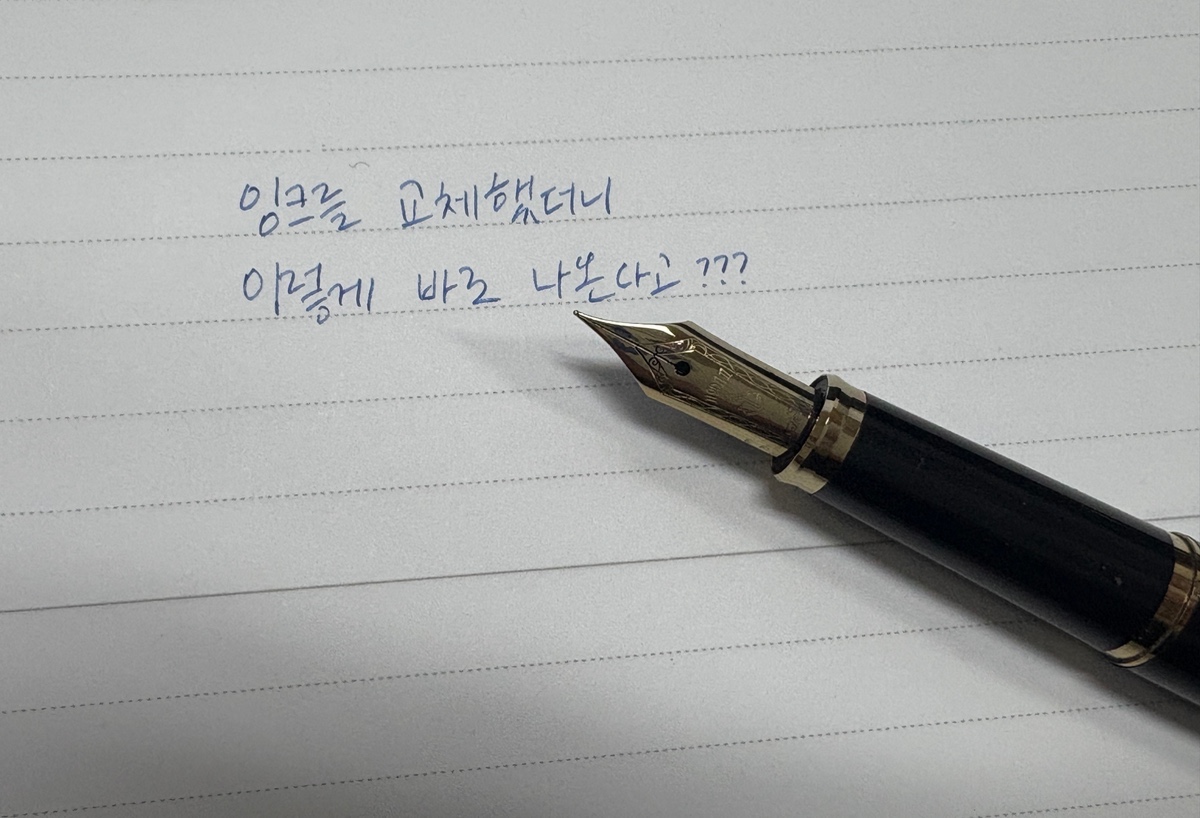 잉크를 교체했더니
이렇게 바로 나온다고???